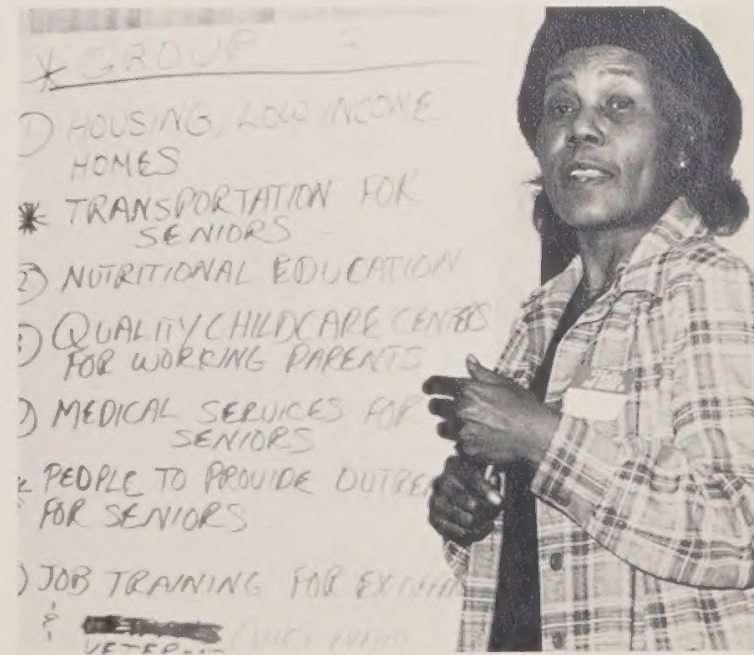 * GROUP
1) HOUSING, LOW INCOME
HOMES
* TRANSPORTATION FOR
SENIORS
2) NUTRITIONAL EDUCATION
) QUALITY CHILDCARE CENTERS
FOR WORKING PARENTS
) MEDICAL SERVICES FOR
SENIORS
PEOPLE TO PROVIDE OUTRE
FOR SENIORS
) JOB TRAINING FOR EXOFFEN
&
VETERAN